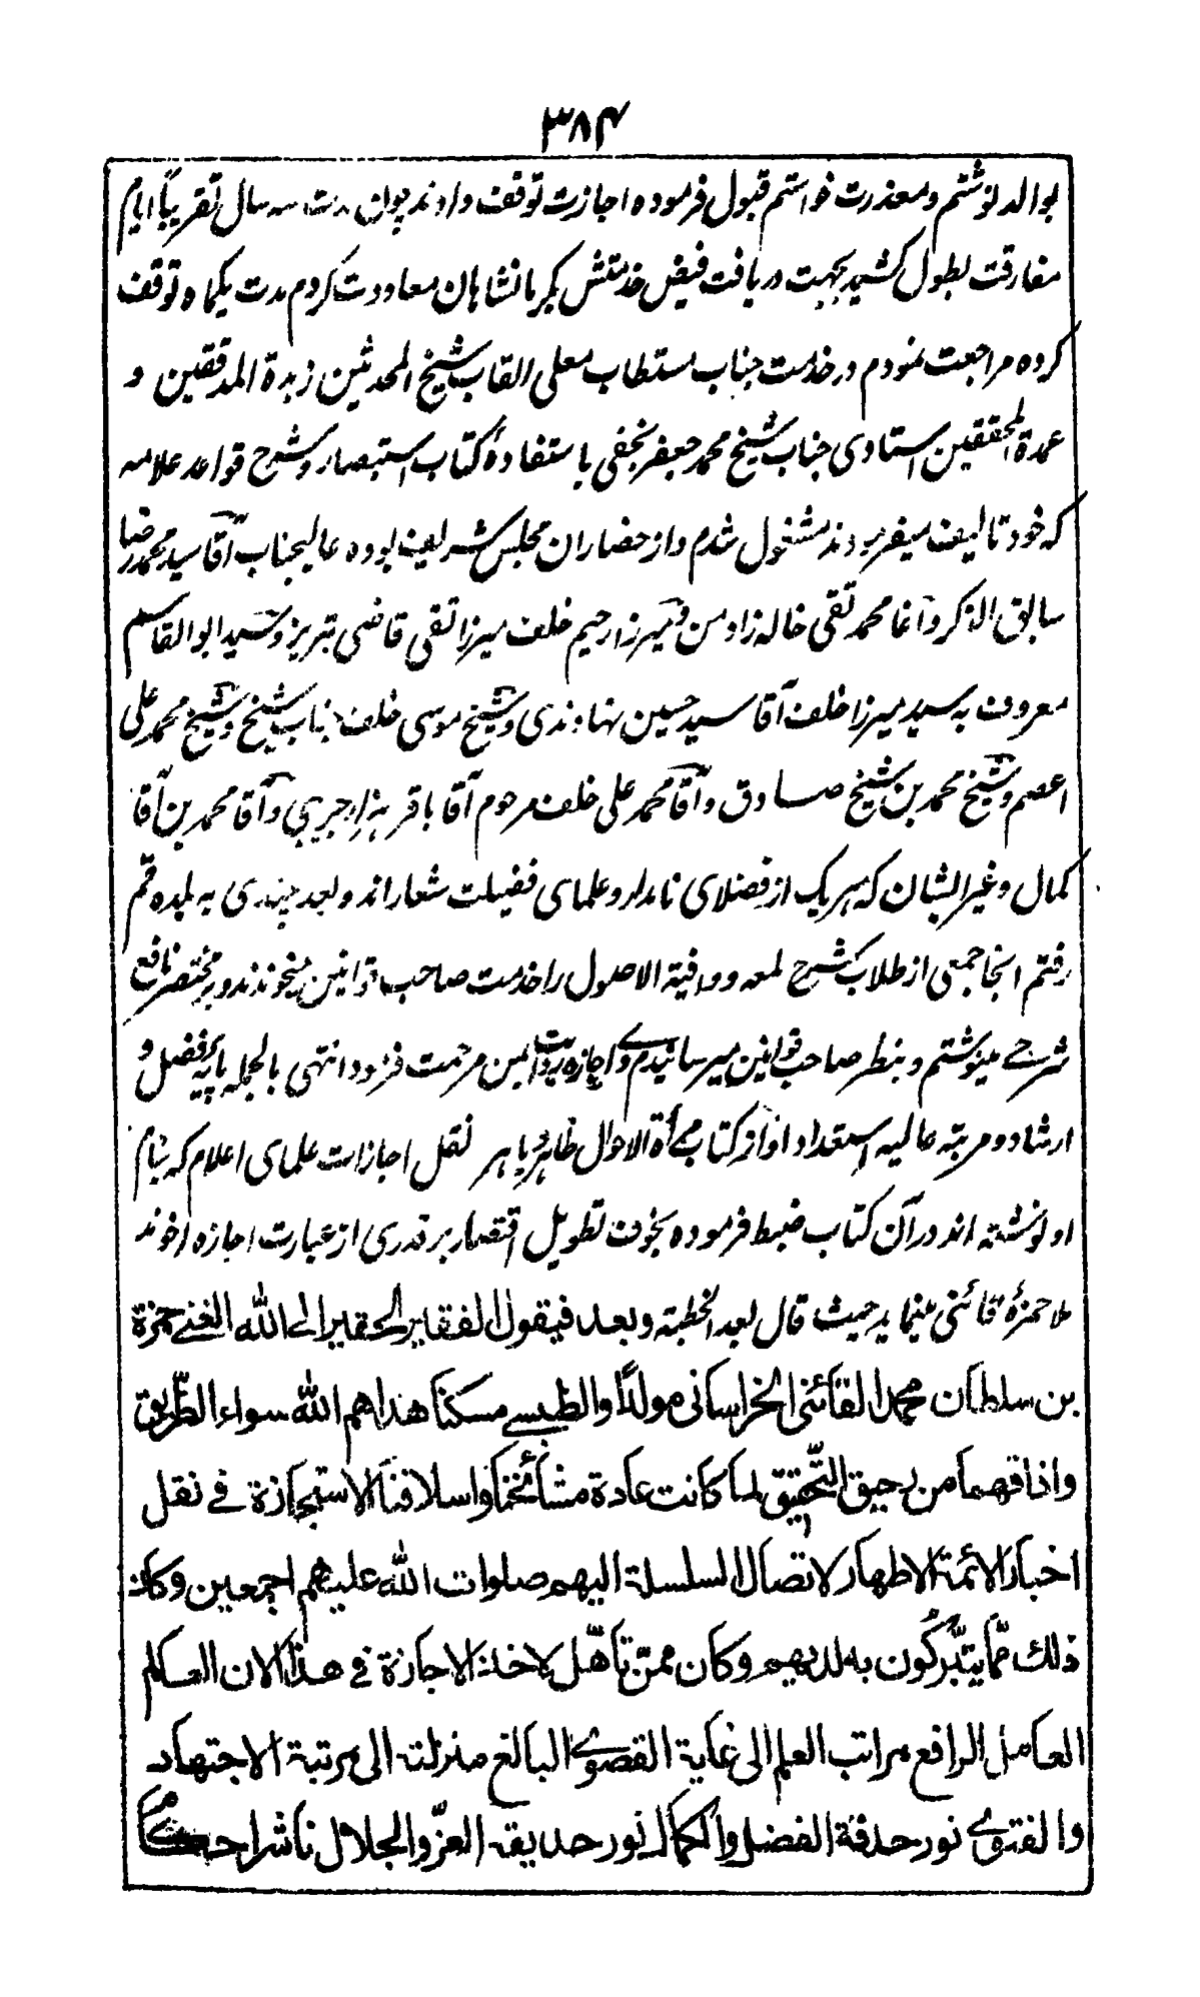 ۳۸۴
بوالد نوشتم و معذرت خواستم قبول فرموده اجازت توقف دادند چون مدت سه سال تقریباً ایام
مفارقت بطول کشید بجهت دریافت فیض خدمتش بکرمانشاهان معاودت کردم مدت یکماه توقف
کرده مراجعت نمودم در خدمت جناب مستطاب معلی القاب شیخ المحدثین زبدة المدققین و
عمدة المحققین استادی جناب شیخ محمد جعفر نجفی باستفادهٔ کتاب استبصار و شرح قواعد علامه
که خود تالیف میفرمودند مشغول شدم و از حضاران مجلس شریف بوده عالیجناب آقا سید محمد رضا
سابق الذکر و آغا محمد تقی خاله زاد من و میرزا رحیم خلف میرزا تقی قاضی تبریز و سید ابو القاسم
معروف به سید میرزا خلف آقا سید حسین نهاوندی و شیخ موسی خلف جناب شیخ و شیخ محمد علی
اعصم و شیخ محمد بن شیخ صادق و آقا محمد علی خلف مرحوم آقا باقر هزارجریبی و آقا محمد بن آقا
کمال و غیر ایشان که هر یک از فضلای نامدار و علمای فضیلت شعار اند و بعد چندی به بلده قم
رفتم انجا جمعی از طلاب شرح لمعه و وافیة الاصول را خدمت صاحب قوانین میخوندند و بر مختصر نافع
شرحے مینوشتم و بنظر صاحب قوانین میرسانیدم وے اجازه روایت بمن مرحمت فرمود انتهی بالجمله پایه فضل و
ارشاد و مرتبه عالیه استعداد او از کتاب مرآة الاحوال ظاهر و باهر نقل اجازات علمای اعلام که بنام
او نوشته اند در آن کتاب ضبط فرموده بخوف تطویل اقتصار بر قدری از عبارت اجازه اخوند
ملا حمزهٔ قائنی مینماید حیث قال بعد الخطبته وبعد فیقول الفقیر الحقیر الی الله الغنے حمزة
بن سلطان محمد القائنی الخراسانی مولداً والطبسے مسکنا هداهم الله سواء الطّریق
واذاقهما من رحیق التّحقیق لما کانت عادة مشائخنا واسلافنا الاستجازة فے نقل
اخبار الائمة الاطهار لاتصال السلسلة الیهم صلوات الله علیهم اجمعین وکان
ذلك ممّا یتبّرکون به لدیهم وکان ممن تأهّل لاخذ الاجازة فی هذا الان العالم
العامل الرافع مراتب العلم الی غایة القصوے البالغ منزلته الی مرتبة الاجتهاد
والفتوے نور حدقة الفضل والکمال نور حدیقة العزّ والجلال ناشر احکام